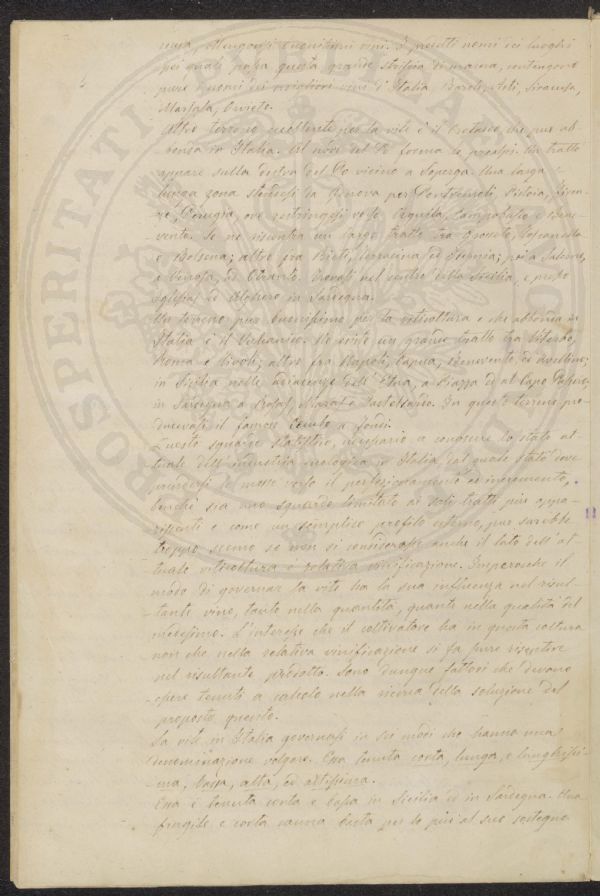 ottengonsi squisitissimi vini. I predetti nomi dei luoghi
pei quali passa questa grande striscia di marna, contengono
pure i nomi dei migliori vini d'Italia, Barolo, Asti, Siracusa,
Marsala, Orvieto.
Altro terreno eccellente per la vite è il che pur ab-
bonda in Italia. Al nord del Po forma le prealpi. Un tratto
appare sulla destra del Po vicino a Soperga. Una larga
lunga zona stendesi da Genova per Pontremoli, Pistoia, Firen-
ze, Perugia, ove restringesi verso Aquila, Campobasso e Bene-
vento. Se ne riscontra un largo tratto tra Grosseto, Toscanella
e Bolsena; altro fra Rieti, Terracina ed Isernia; poi a Salerno,
a Venosa, ed Otranto. Trovasi nel centro della Sicilia, e presso
Iglesias ed Alghero in Sardegna.
Un terreno pure buonissimo per la viticoltura e che abbonda in
Italia è il Vulcanico. Ne esiste un grande tratto tra Viterbo,
Roma e Tivoli; altro fra Napoli, Capua, Benevento ed Avellino;
in Sicilia nelle adiacenze dell'Etna, a Piazza ed al Capo Passero,
in Sardegna a e Castelsardo. In questo terreno pro-
ducevasi il famoso Cecubo a Fondi.
Questo sguardo statistico, necessario a conoscere lo stato at-
tuale dell'industria enologica in Italia, dal quale stato deve
prendersi le mosse verso il perfezionamento ed incremento,
benché sia uno sguardo limitato ai soli tratti più appa-
riscenti e come un semplice profilo esterno, pur sarebbe
troppo scemo se non si considerasse anche il lato dell'at-
tuale viticoltura e relativa vinificazione. Imperocché il
modo di governar la vite ha la sua influenza nel risul-
tante vino, tanto nella quantità, quanto nella qualità del
medesimo. L'interesse che il coltivatore ha in questa coltura
non che nella relativa vinificazione si fa pure risentire
nel resultante prodotto. Sono dunque fattori che devono
essere tenuti a calcolo nella ricerca della soluzione del
proposto quesito.
La vite in Italia governasi in sei modi che hanno una
denominazione volgare. Essa tenuta corta, lunga, e lunghissi-
ma, bassa, alta, ed altissima.
Essa è tenuta corta e bassa in Sicilia ed in Sardegna. Una
fragile e corta canna basta per lo più al suo sostegno
PROSPERITATI